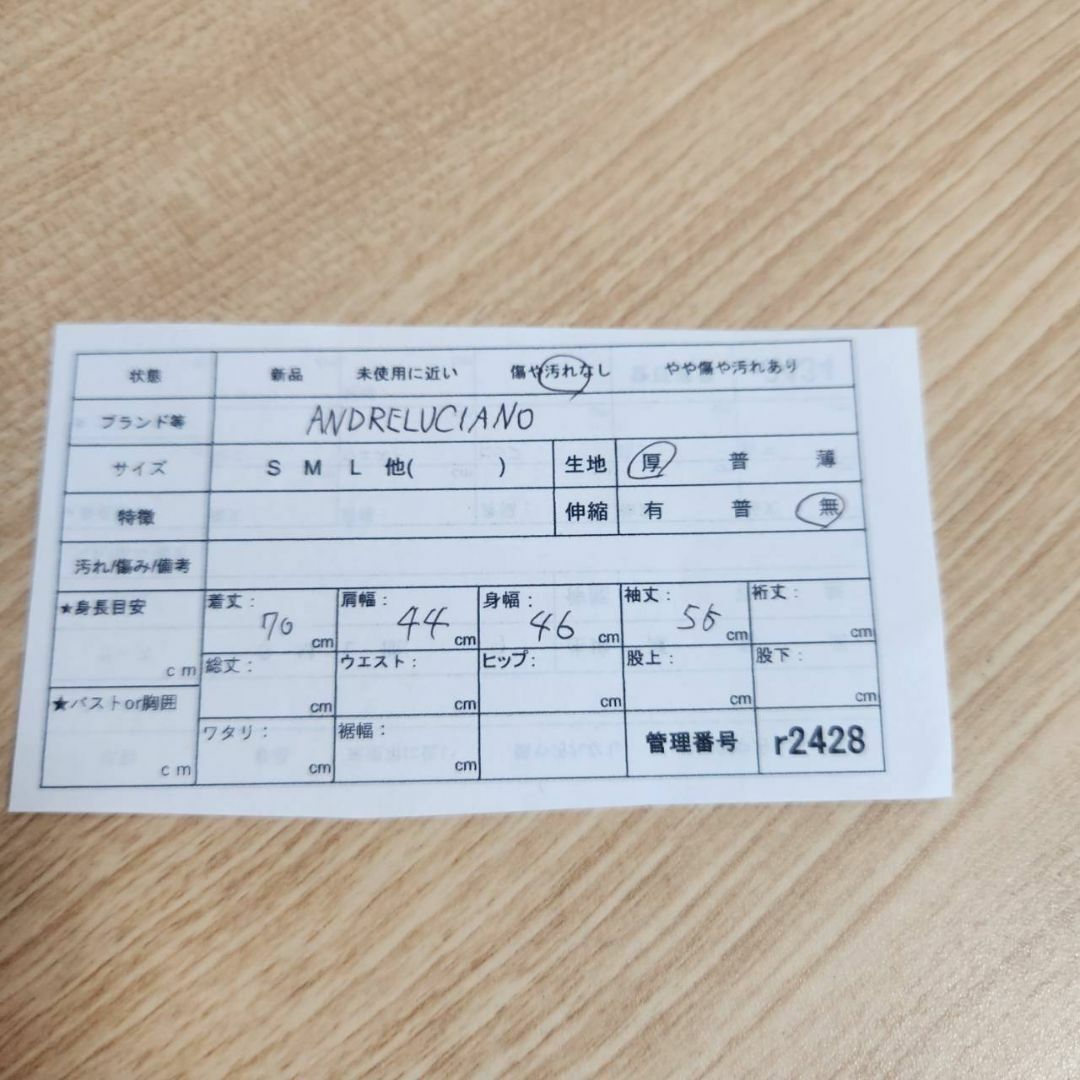 状態 新品 未使用に近い 傷や汚れなし やや傷や汚れあり
ブランド等 ANDRELUCIANO
サイズ S M L 他( ) 生地 厚 普 薄
特徴 伸縮 有 普 無
汚れ/傷み/備考
★身長目安 cm 着丈: 70 cm 肩幅: 44 cm 身幅: 46 cm 袖丈: 56 cm 裄丈: cm
総丈: cm ウエスト: cm ヒップ: cm 股上: cm 股下: cm
★バストor胸囲 cm ワタリ: cm 裾幅: cm 管理番号 r2428